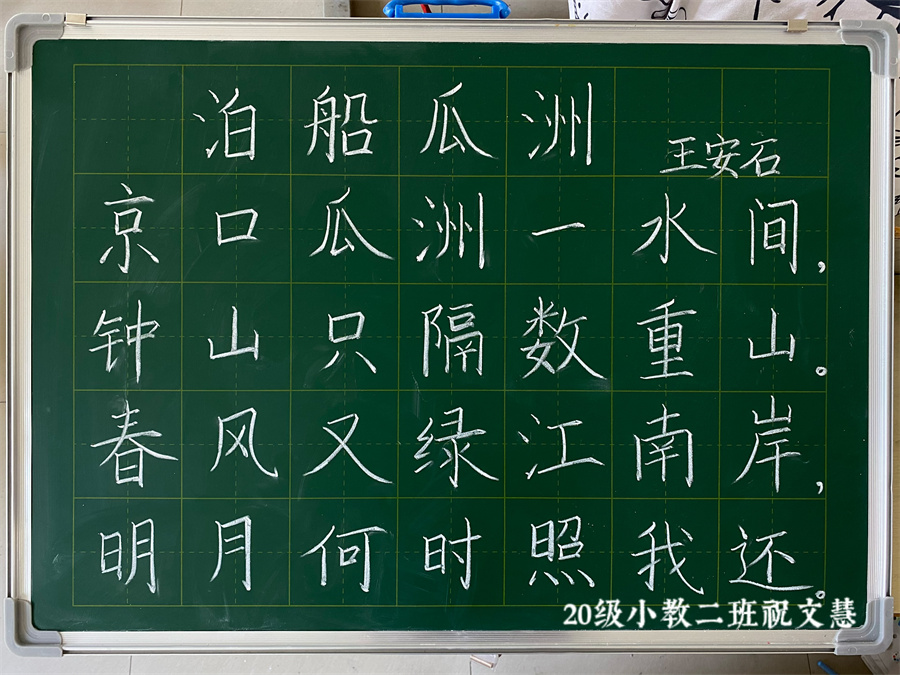 泊船瓜洲
王安石
京口瓜洲一水间，
钟山只隔数重山。
春风又绿江南岸，
明月何时照我还。
20级小教二班祝文慧